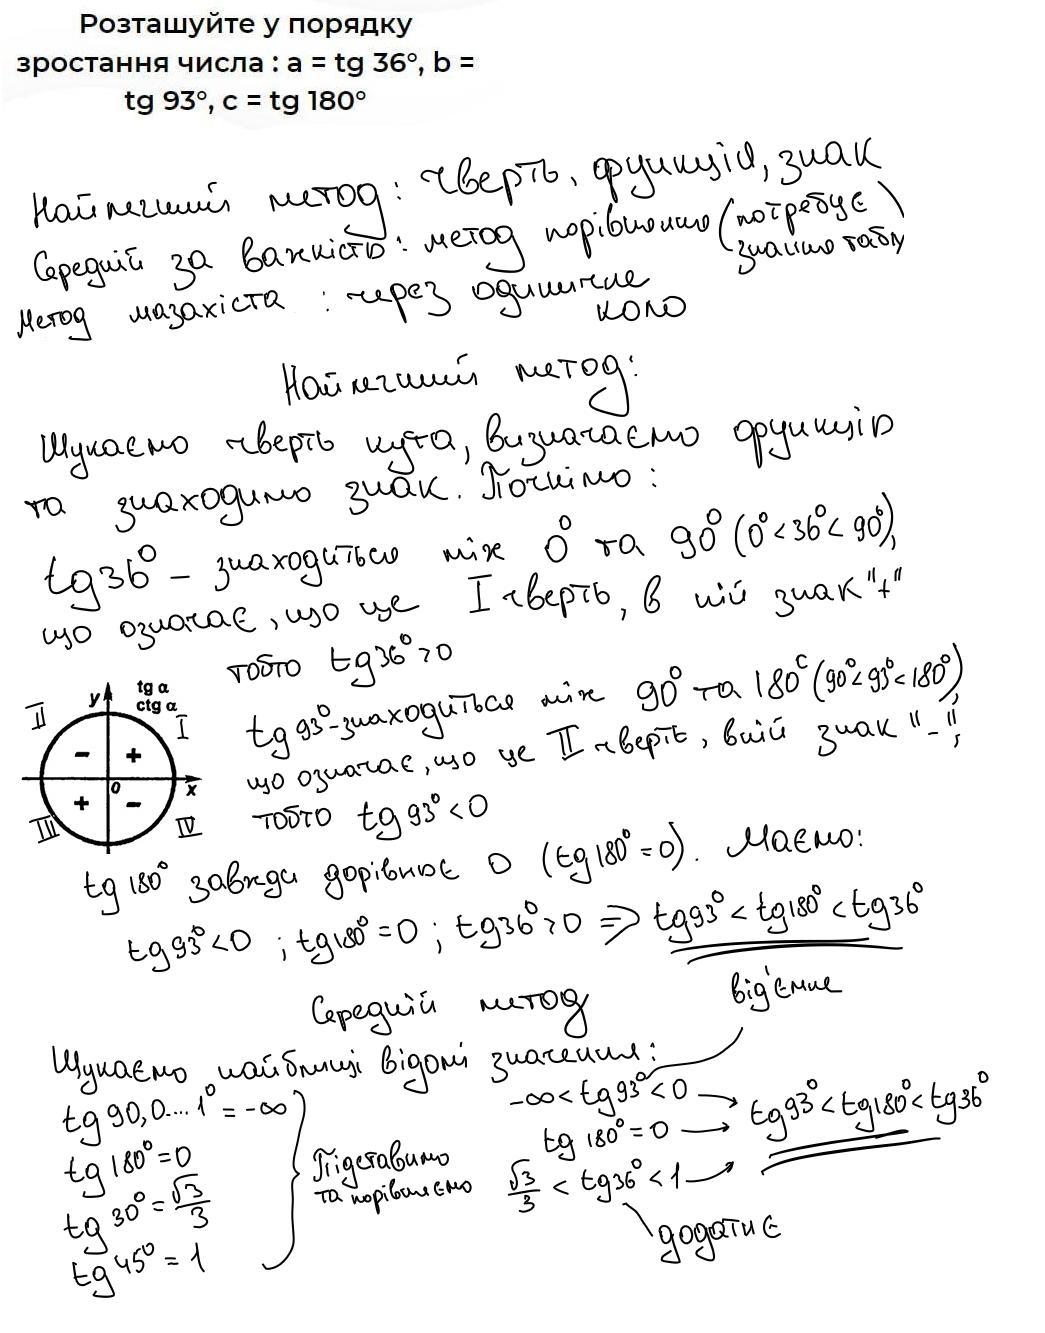 Розташуйте у порядку
зростання числа : a = tg 36°, b =
tg 93°, c = tg 180°
Найлегший метод: Чверть, функція, знак
Середній за важкістю: метод порівняння (потребує
знання табл)
Метод мазахіста : через одиничне
коло
Найлегший метод:
Шукаємо чверть кута, визначаємо функцію
та знаходимо знак. Почнімо:
tg36° – знаходиться між 0° та 90° (0° < 36° < 90°),
що означає, що це I чверть, в ній знак "+"
тобто tg36° > 0
y tg α
ctg α
II I
– +
0 x
+ –
III IV
tg93° - знаходиться між 90° та 180° (90° < 93° < 180°),
що означає, що це II чверть, в ній знак "-",
тобто tg93° < 0
tg180° завжди дорівнює 0 (tg180° = 0). Маємо:
tg93° < 0 ; tg180° = 0 ; tg36° > 0 => tg93° < tg180° < tg36°
Середній метод
від'ємне
Шукаємо найближчі відомі значення:
tg90,0...1° = -∞
tg180° = 0
tg30° = √3/3
tg45° = 1
Підставимо
та порівняємо
-∞ < tg93° < 0
tg180° = 0
√3/3 < tg36° < 1
додатнє
tg93° < tg180° < tg36°